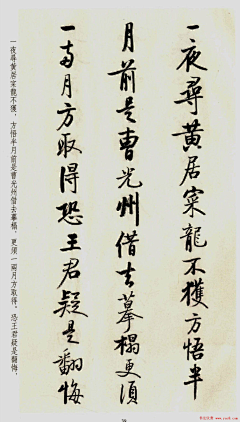 一夜尋黄居寀龍不獲方悟半
月前是曹光州借去摹搨更須
一兩月方取得恐王君疑是翻悔
一夜尋黄居寀龍不獲，方悟半月前是曹光州借去摹榻，更須一兩月方取得。恐王君疑是翻悔，